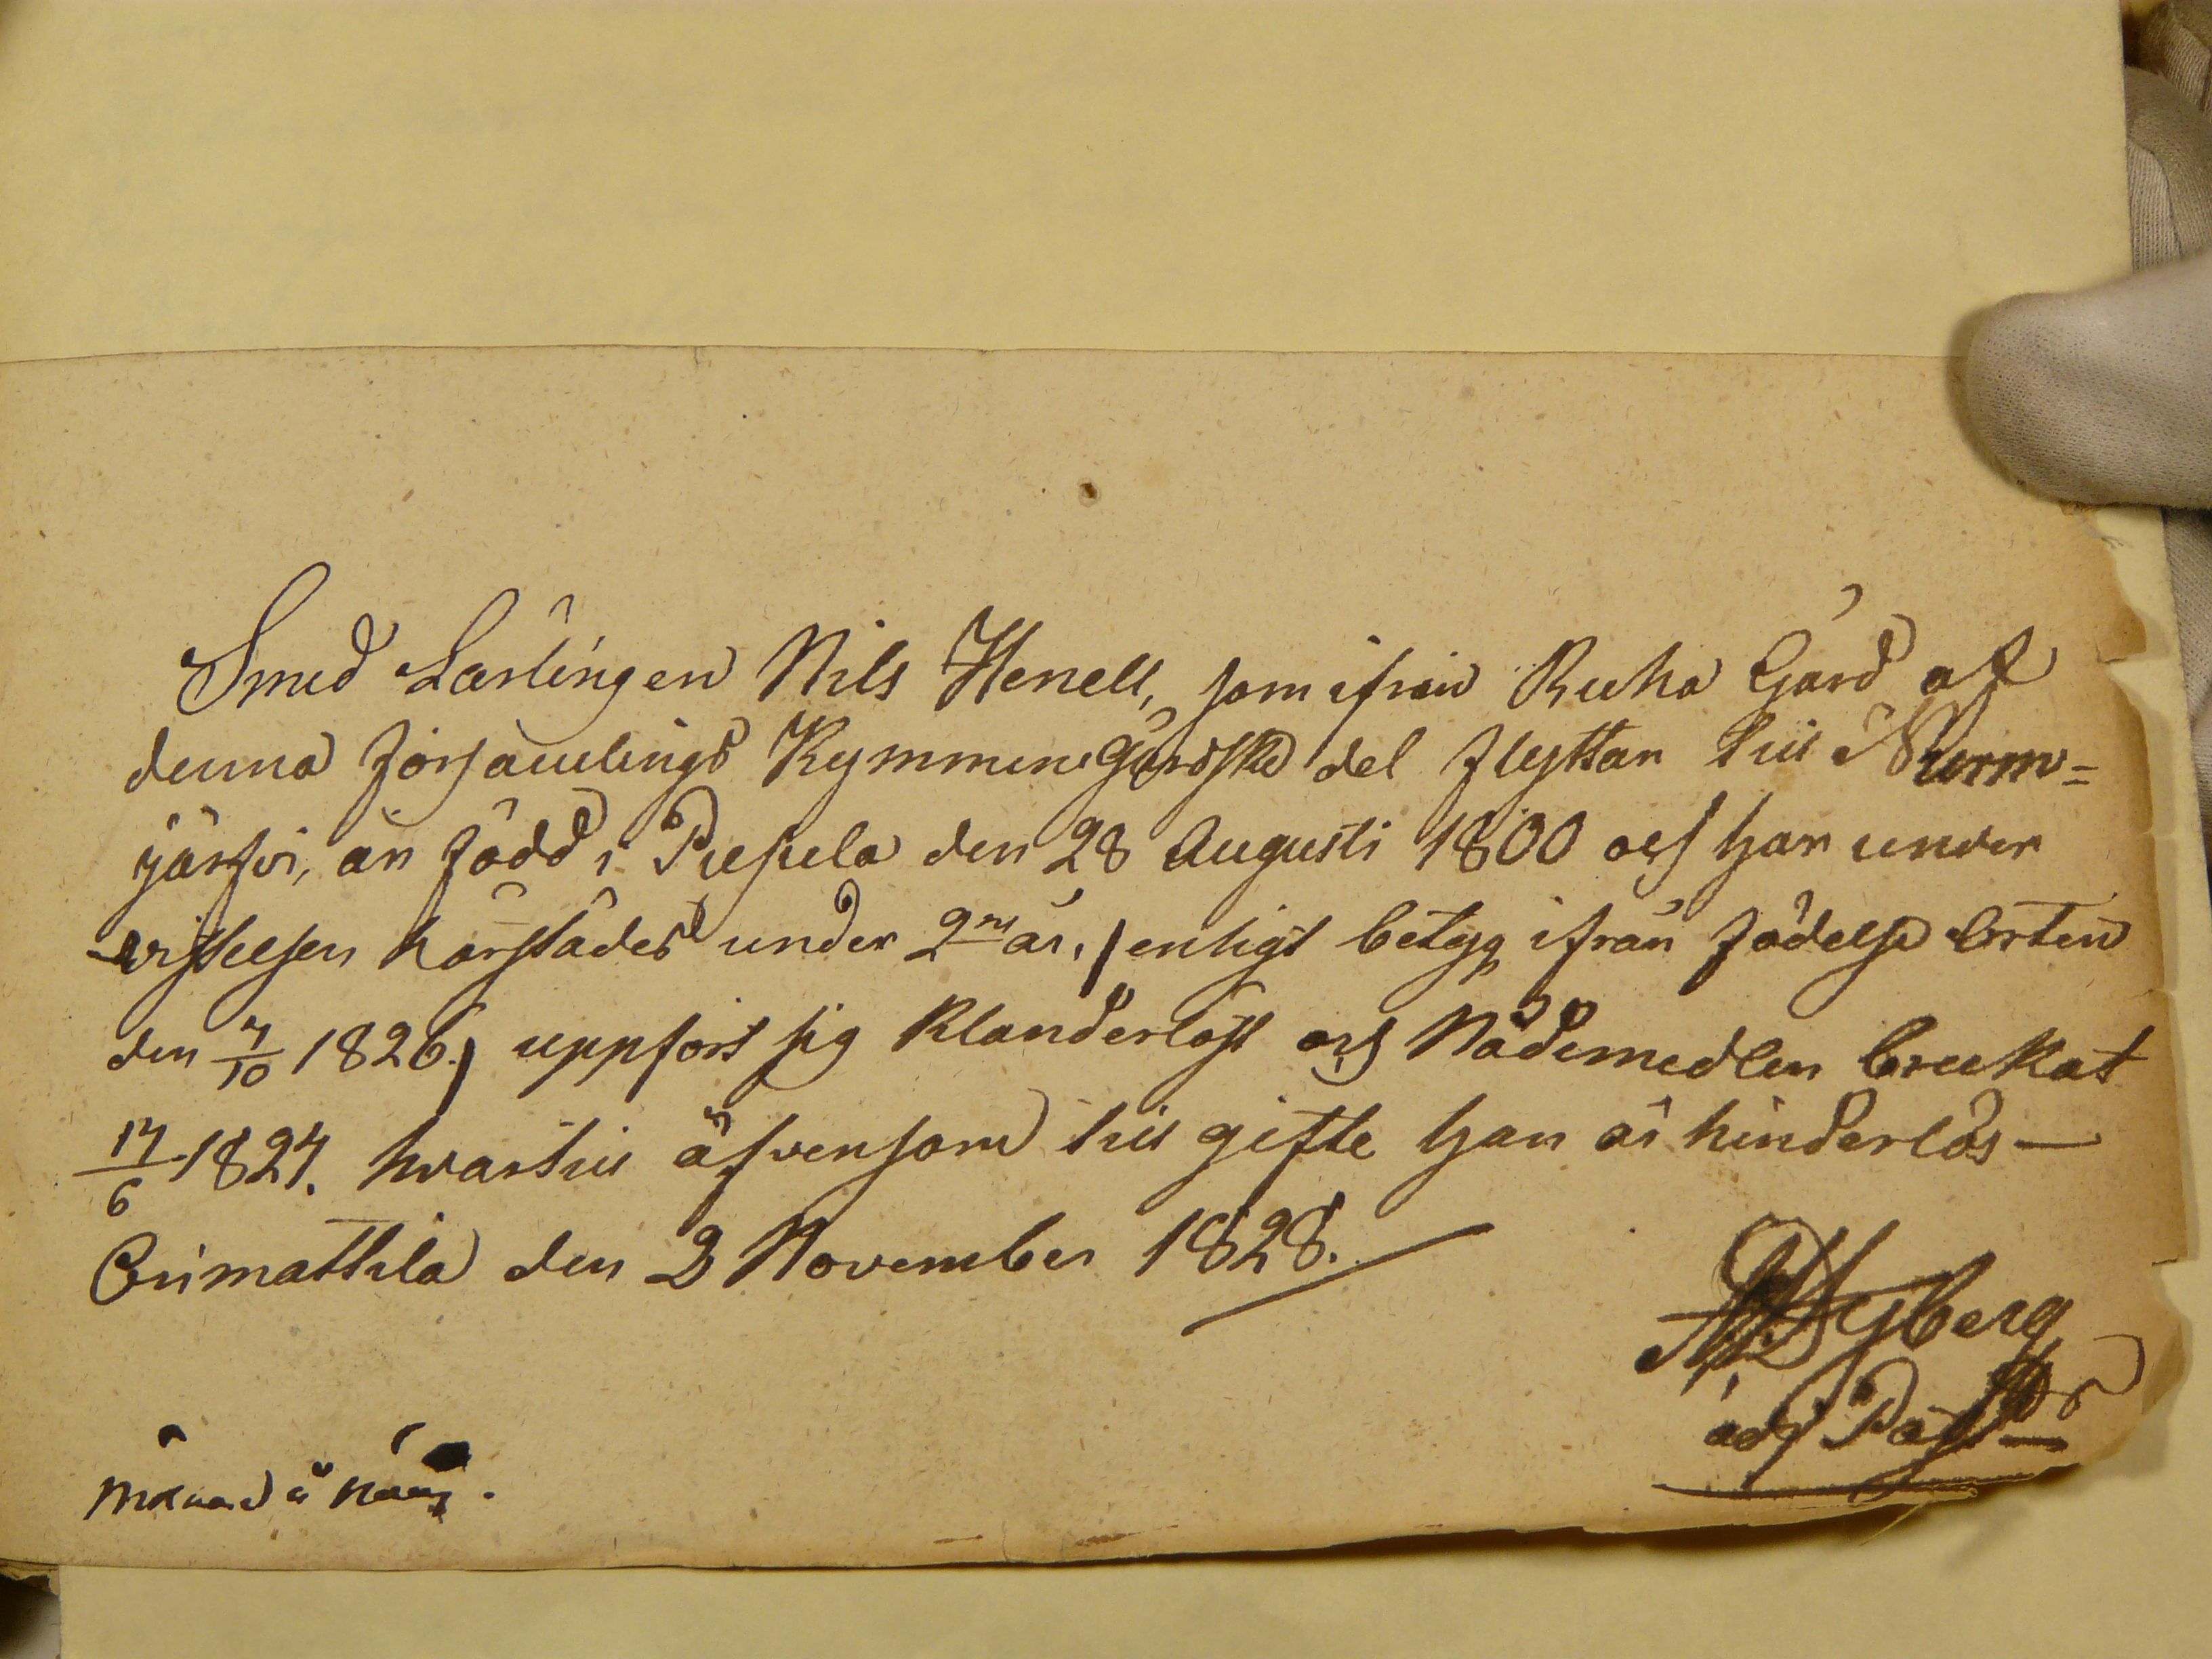 Smed Lärlingen Nils Henell, som ifrån Ruha Gård af
denna församlings Kymmenegårdska del flyttar till Nurm=
järfvi, är född i Pusula den 28 Augusti 1800 och har under
vistelsen härstädes under 2ne år, /enligt betyg ifrån födelse Orten
den 7/10 1826./ uppfört sig klanderlöst och Nådemedlen brukat
17/6 1827. hvartill äfvensom till gifte han är hinderlös —
Orimattila den 3 November 1828.
Nyberg
adj Past